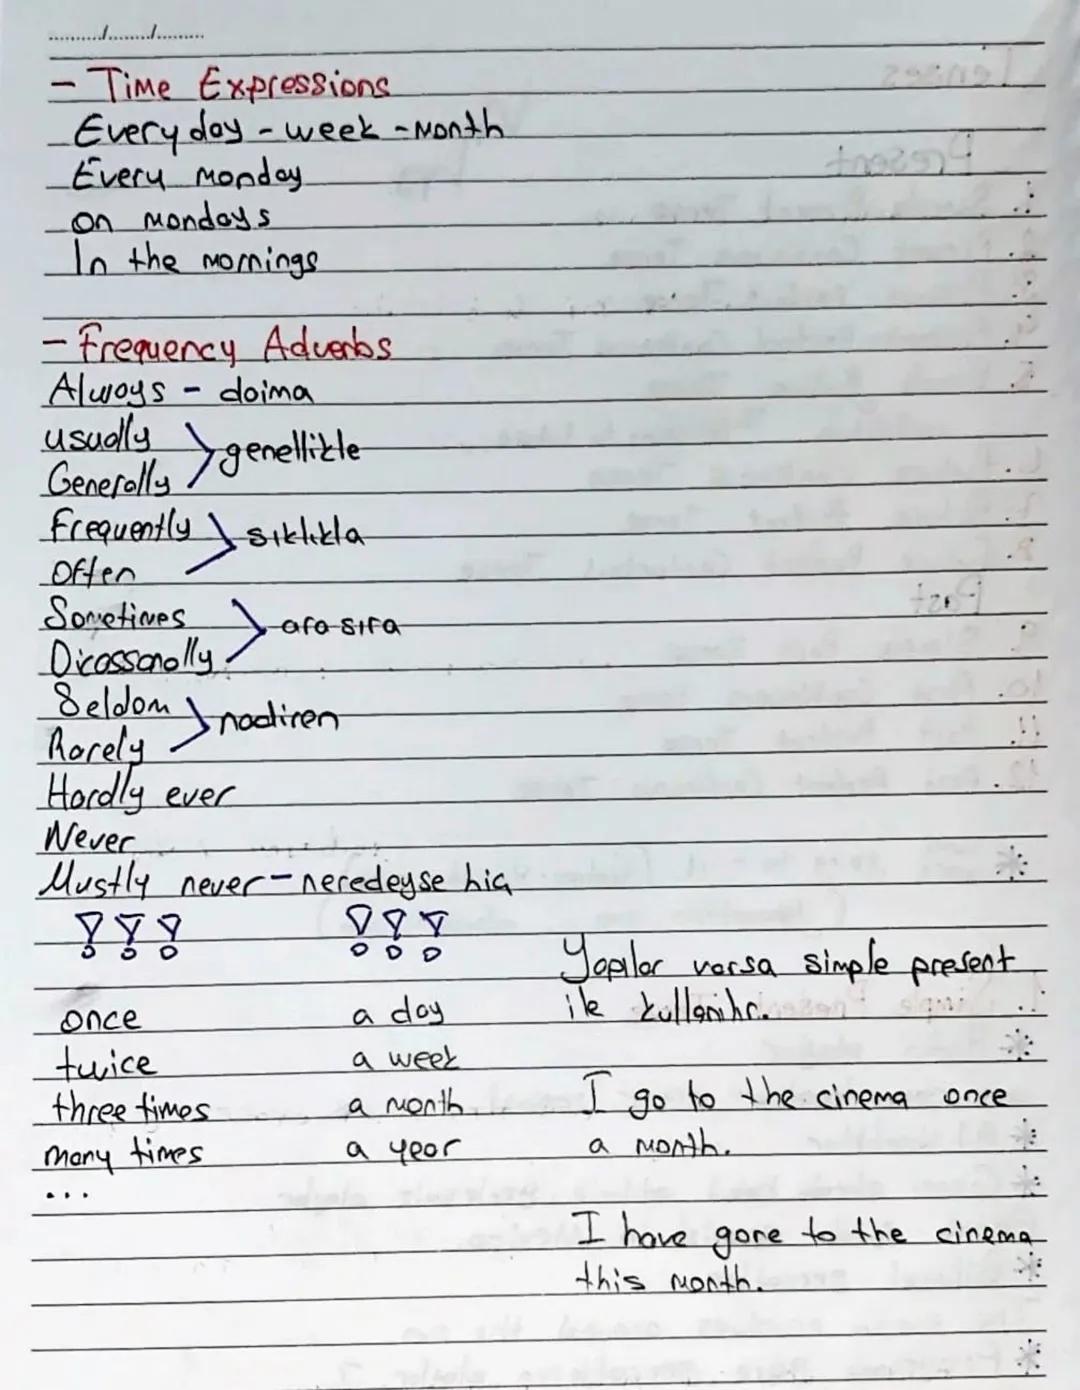 ........./......../.........
- Time Expressions
Every day - week - Month
Every monday
on mondays
In the mornings
- Frequency Adverbs
Always - daima
usually
genellikle
Generally
Frequently
sıklıkla
Often
Sometimes
ara sıra
Oicassonally
Seldom
nadiren
Rarely
Hardly ever
Never
Mustly never - neredeyse hiç
!!! !!!
Yapılar varsa simple present
once a day ile kullanılır.
twice a week
three times a month I go to the cinema once
many times a year a month.
...
I have gone to the cinema
this month.